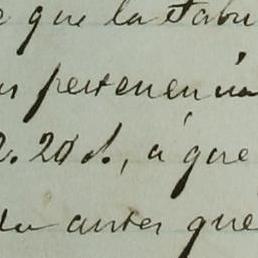 que la Fabri
pertenencia
2. 20 d., á que
antes que